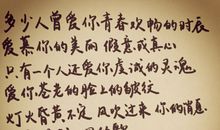 多少人曾爱你青春欢畅的时辰
爱慕你的美丽 假意或真心
只有一个人还爱你虔诚的灵魂
爱你苍老的脸上的皱纹
灯火昏黄不定 风吹过来 你的消息